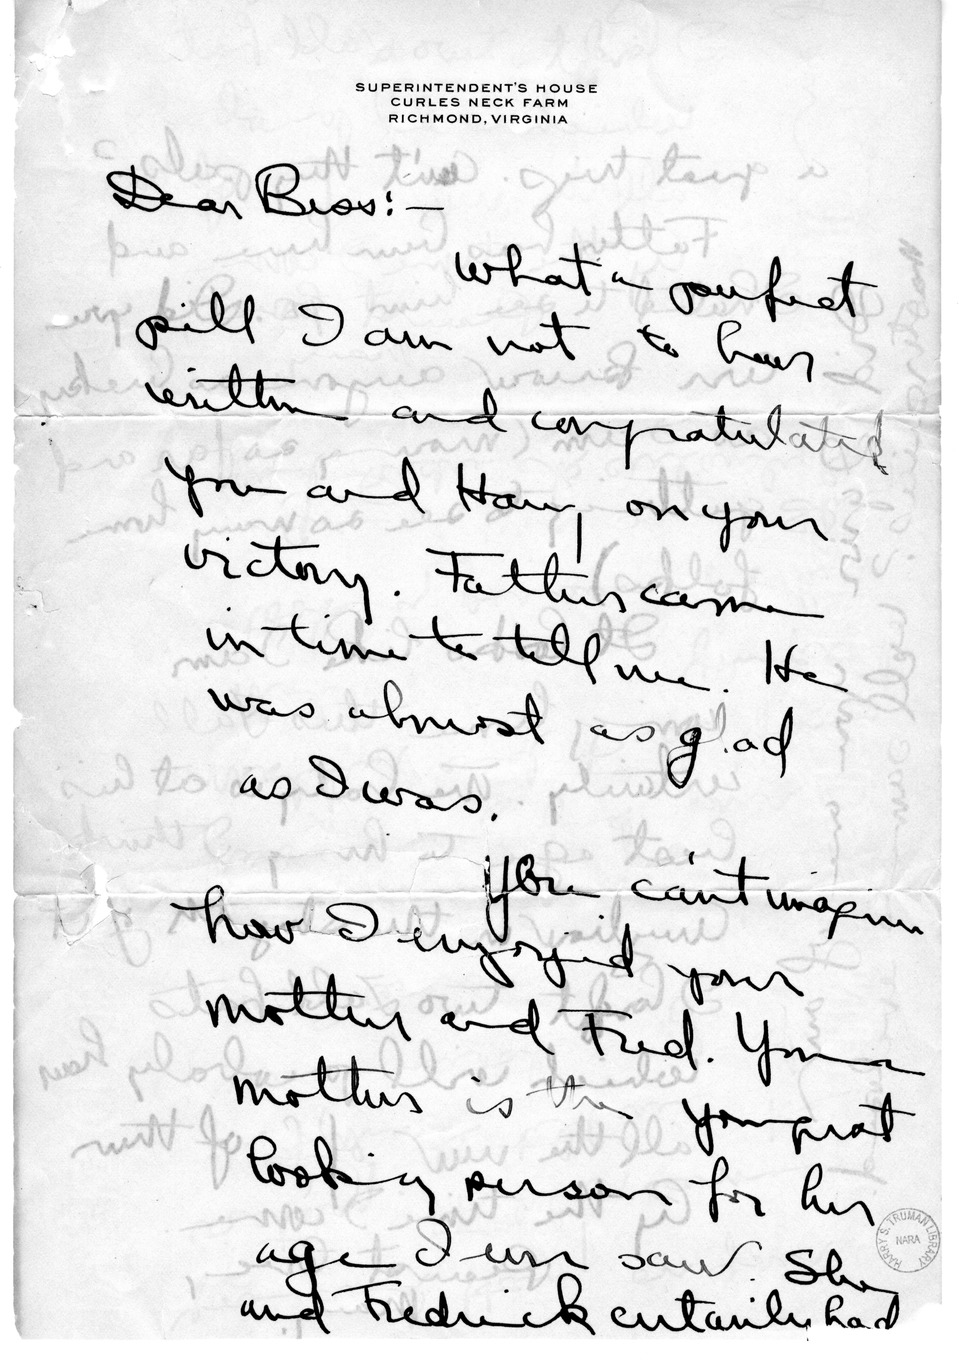 SUPERINTENDENT'S HOUSE
CURLES NECK FARM
RICHMOND, VIRGINIA
Dear Bess:—
What a perfect
pill I am not to have
written and congratulated
you and Harry on your
victory. Father came
in time to tell me. He
was almost as glad
as I was.
You can't imagine
how I enjoyed your
mother and Fred. Your
mother is the youngest
looking person for her
age I ever saw. She
and Fredrick certainly had
HARRY S. TRUMAN LIBRARY
NARA